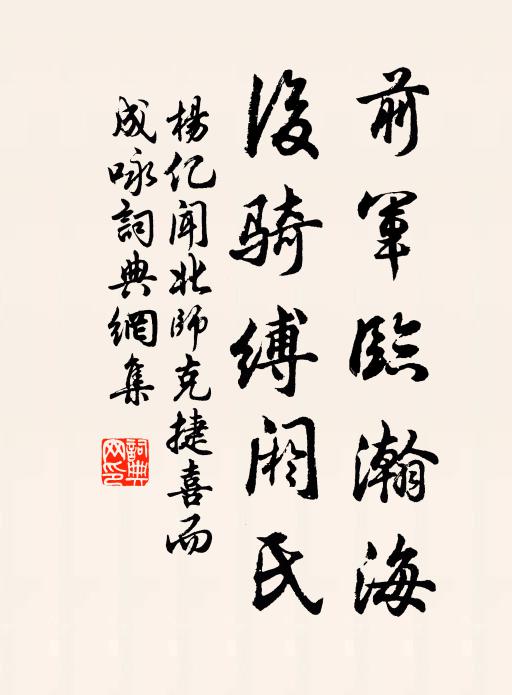 前軍臨瀚海
後騎縛閼氏
楊亿聞北師克捷喜而
成咏詞典網集
詞典网印